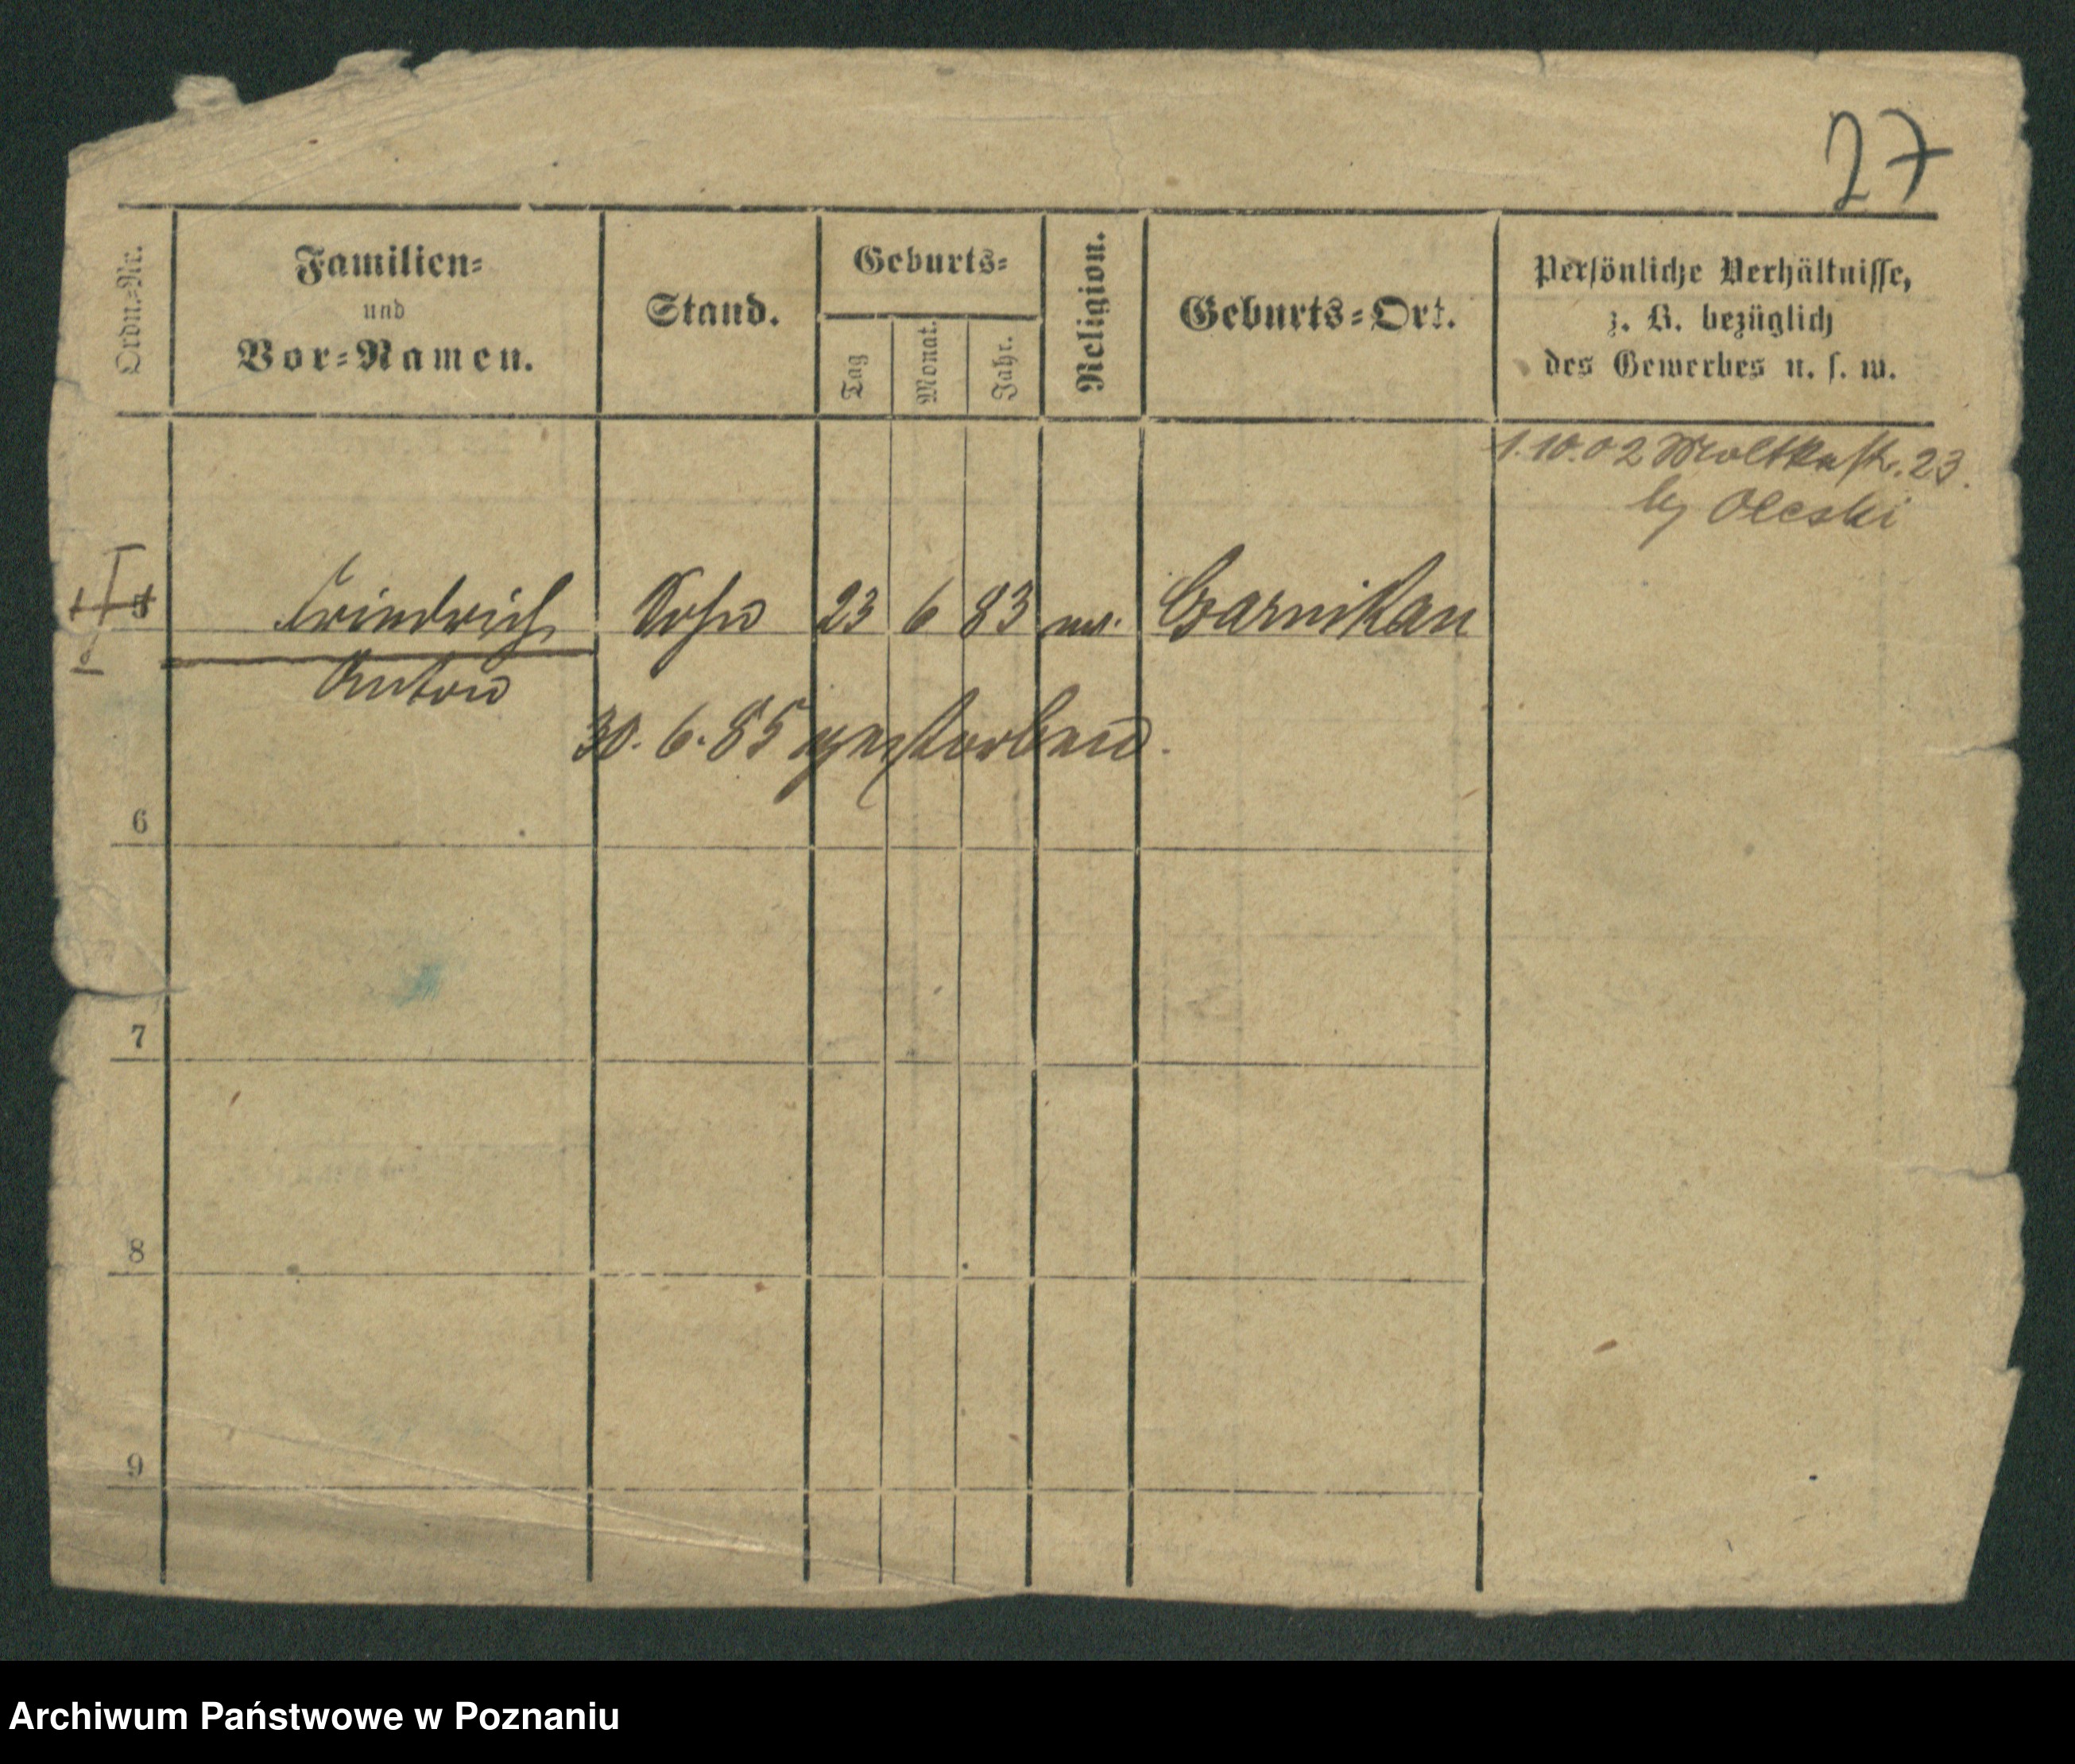 27
Ordn.-Nr.
Familien-
und
Vor-Namen.
Stand.
Geburts-
Tag
Monat.
Jahr.
Religion.
Geburts-Ort.
Persönliche Verhältnisse,
z. B. bezüglich
des Gewerbes u. s. w.
1.10.02 Moltkestr. 23.
bei Oleski
5 Friedrich Sohn 23 6 83 Czarnikau
Anton
30. 6. 85 gestorben.
6
7
8
9
Archiwum Państwowe w Poznaniu